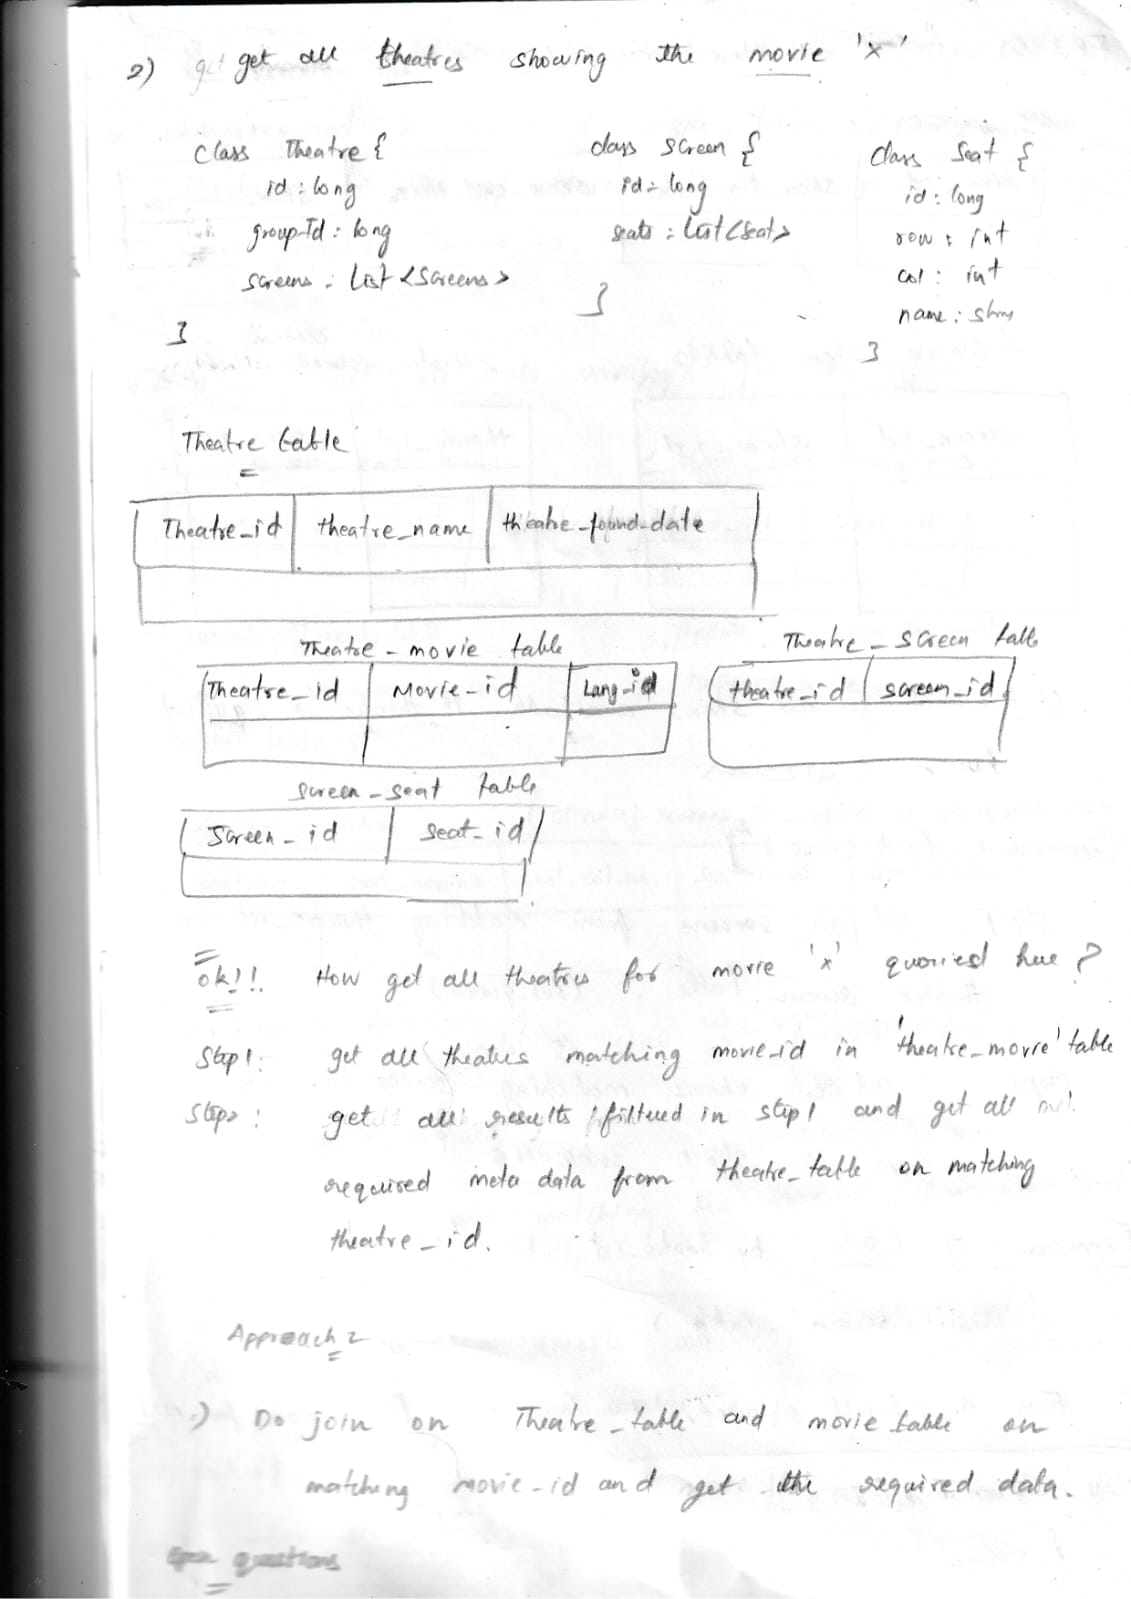 2) get get all theatres showing the movie 'x'
class Theatre {
id : long
group-Id : long
screens : List <Screens>
}
class screen {
id : long
seats : List <Seat>
}
class Seat {
id : long
row : int
col : int
name :
}
Theatre table
Theatre_id theatre_name theatre_found_date
Theatre - movie table
Theatre_id Movie-id Lang-id
Theatre - screen table
theatre_id screen_id
screen - seat table
Screen - id Seat - id
ok!! How get all theatres for movie 'x' queried here ?
Step 1 : get all theatres matching movie-id in 'theatre_movie' table
Step 2 : get all results filtered in step 1 and get all
required meta data from theatre_table on matching
theatre_id.
Approach 2
.) Do join on Theatre_table and movie table on
matching movie-id and get the required data.
questions